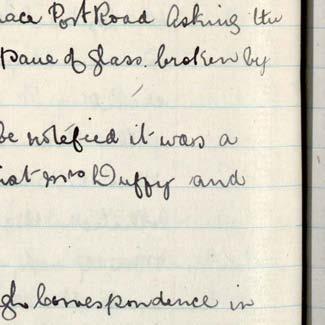 ace Port Road Asking the
Pane of glass. broken by
be notified it was a
iat Mrs Duffy and
gh Correspondence in